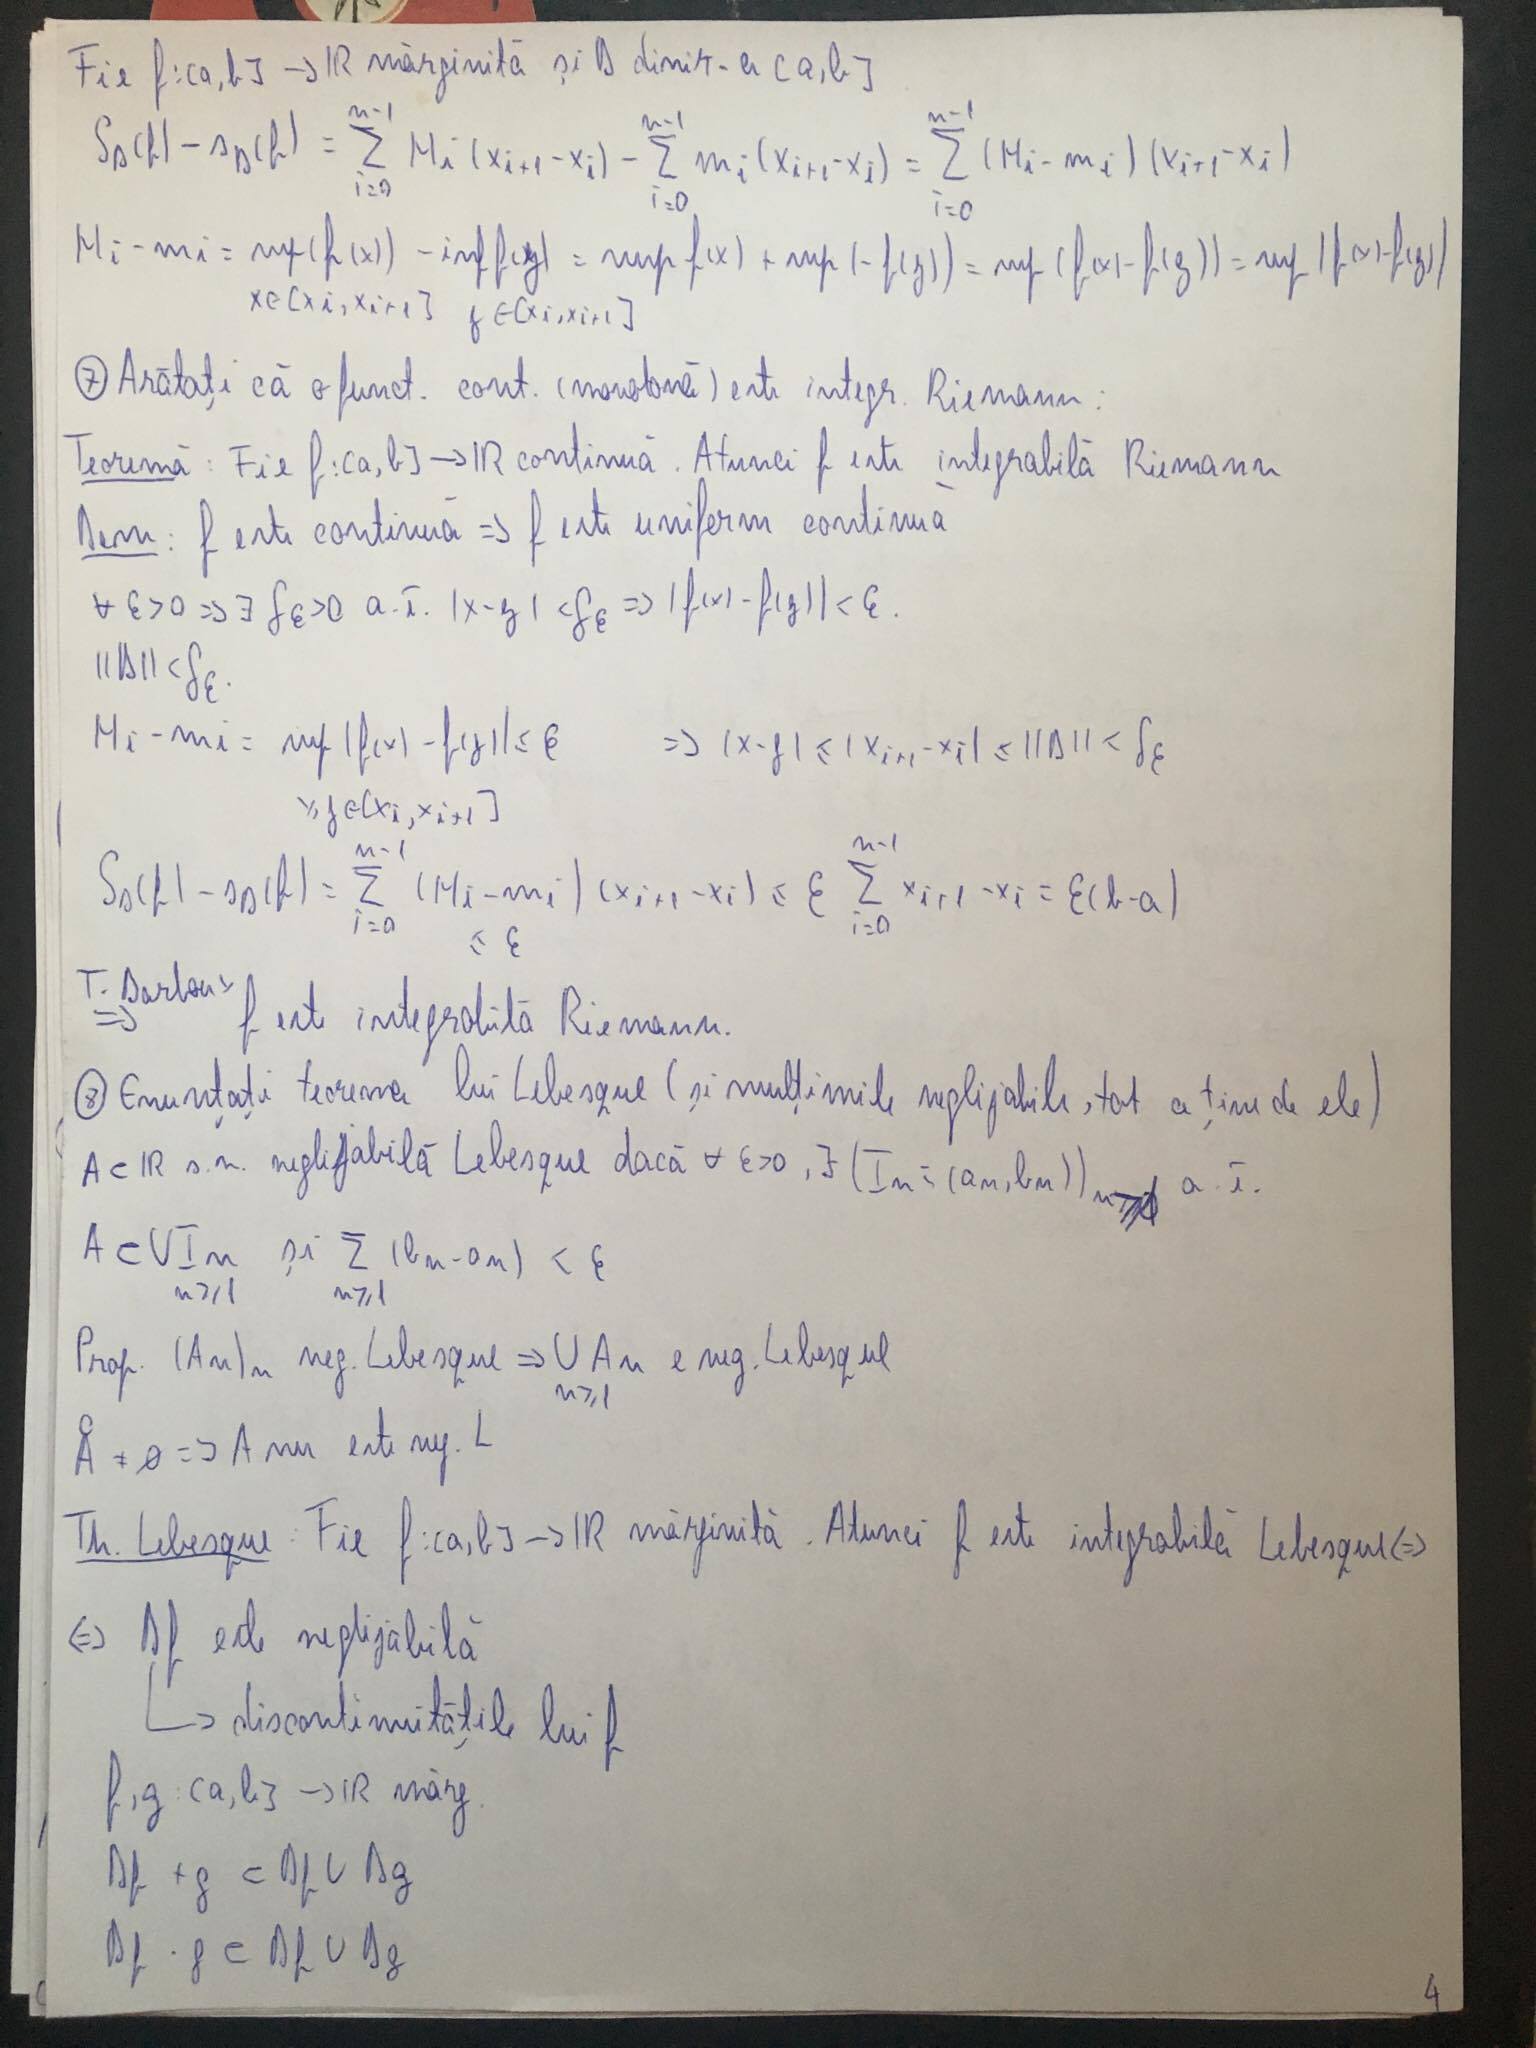 Fie f:[a,b] → ℝ mărginită și Δ diviz. a [a,b]
S_Δ(f) - s_Δ(f) = ∑_{i=0}^{n-1} M_i (x_{i+1} - x_i) - ∑_{i=0}^{n-1} m_i (x_{i+1} - x_i) = ∑_{i=0}^{n-1} (M_i - m_i) (x_{i+1} - x_i)
M_i - m_i = sup (f(x)) - inf f(y) = sup f(x) + sup (-f(y)) = sup (f(x) - f(y)) = sup |f(x) - f(y)|
x∈[x_i, x_{i+1}] y∈[x_i, x_{i+1}]
⑦ Arătați că o funct. cont. (monotonă) este integr. Riemann:
Teoremă: Fie f:[a,b] → ℝ continuă. Atunci f este integrabilă Riemann
Dem: f este continuă => f este uniform continuă
∀ ε>0 => ∃ δ_ε>0 a.î. |x-y| < δ_ε => |f(x) - f(y)| < ε.
||Δ|| < δ_ε.
M_i - m_i = sup |f(x) - f(y)| ≤ ε => |x-y| ≤ |x_{i+1} - x_i| ≤ ||Δ|| < δ_ε
x,y∈[x_i, x_{i+1}]
S_Δ(f) - s_Δ(f) = ∑_{i=0}^{n-1} (M_i - m_i) (x_{i+1} - x_i) ≤ ε ∑_{i=0}^{n-1} x_{i+1} - x_i = ε(b-a)
≤ ε
T. Darboux
=> f este integrabilă Riemann.
⑧ Enunțați teorema lui Lebesque (și mulțimile neglijabile, tot ce ține de ele)
A ⊂ ℝ s.n. neglijabilă Lebesque dacă ∀ ε>0, ∃ (I_n = (a_n, b_n))_n a.î.
A ⊂ ∪ I_n și ∑ (b_n - a_n) < ε
n≥1 n≥1
Prop. (A_n)_n neg. Lebesque => ∪ A_n e neg. Lebesque
n≥1
Å ≠ ∅ => A nu este neg. L
Th. Lebesque: Fie f:[a,b] → ℝ mărginită. Atunci f este integrabilă Lebesque <=>
<=> Df este neglijabilă
↳ discontinuitățile lui f
f,g:[a,b] → ℝ mărg.
Df+g ⊂ Df ∪ Dg
Df·g ⊂ Df ∪ Dg
4